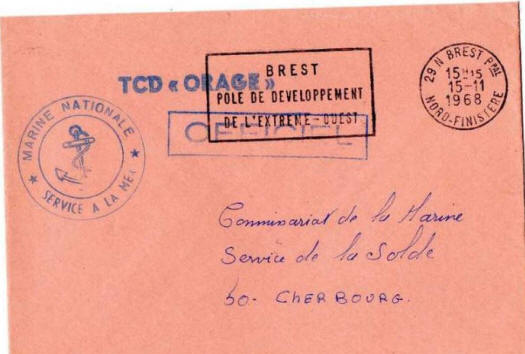 TCD « ORAGE »
BREST
POLE DE DEVELOPPEMENT
DE L'EXTREME-OUEST
OFFICIEL
29 N BREST PPAL
15H15
15-11
1968
NORD-FINISTERE
MARINE NATIONALE
★ SERVICE A LA MER ★
Commisariat de la Marine
Service de la Solde
50- CHERBOURG.